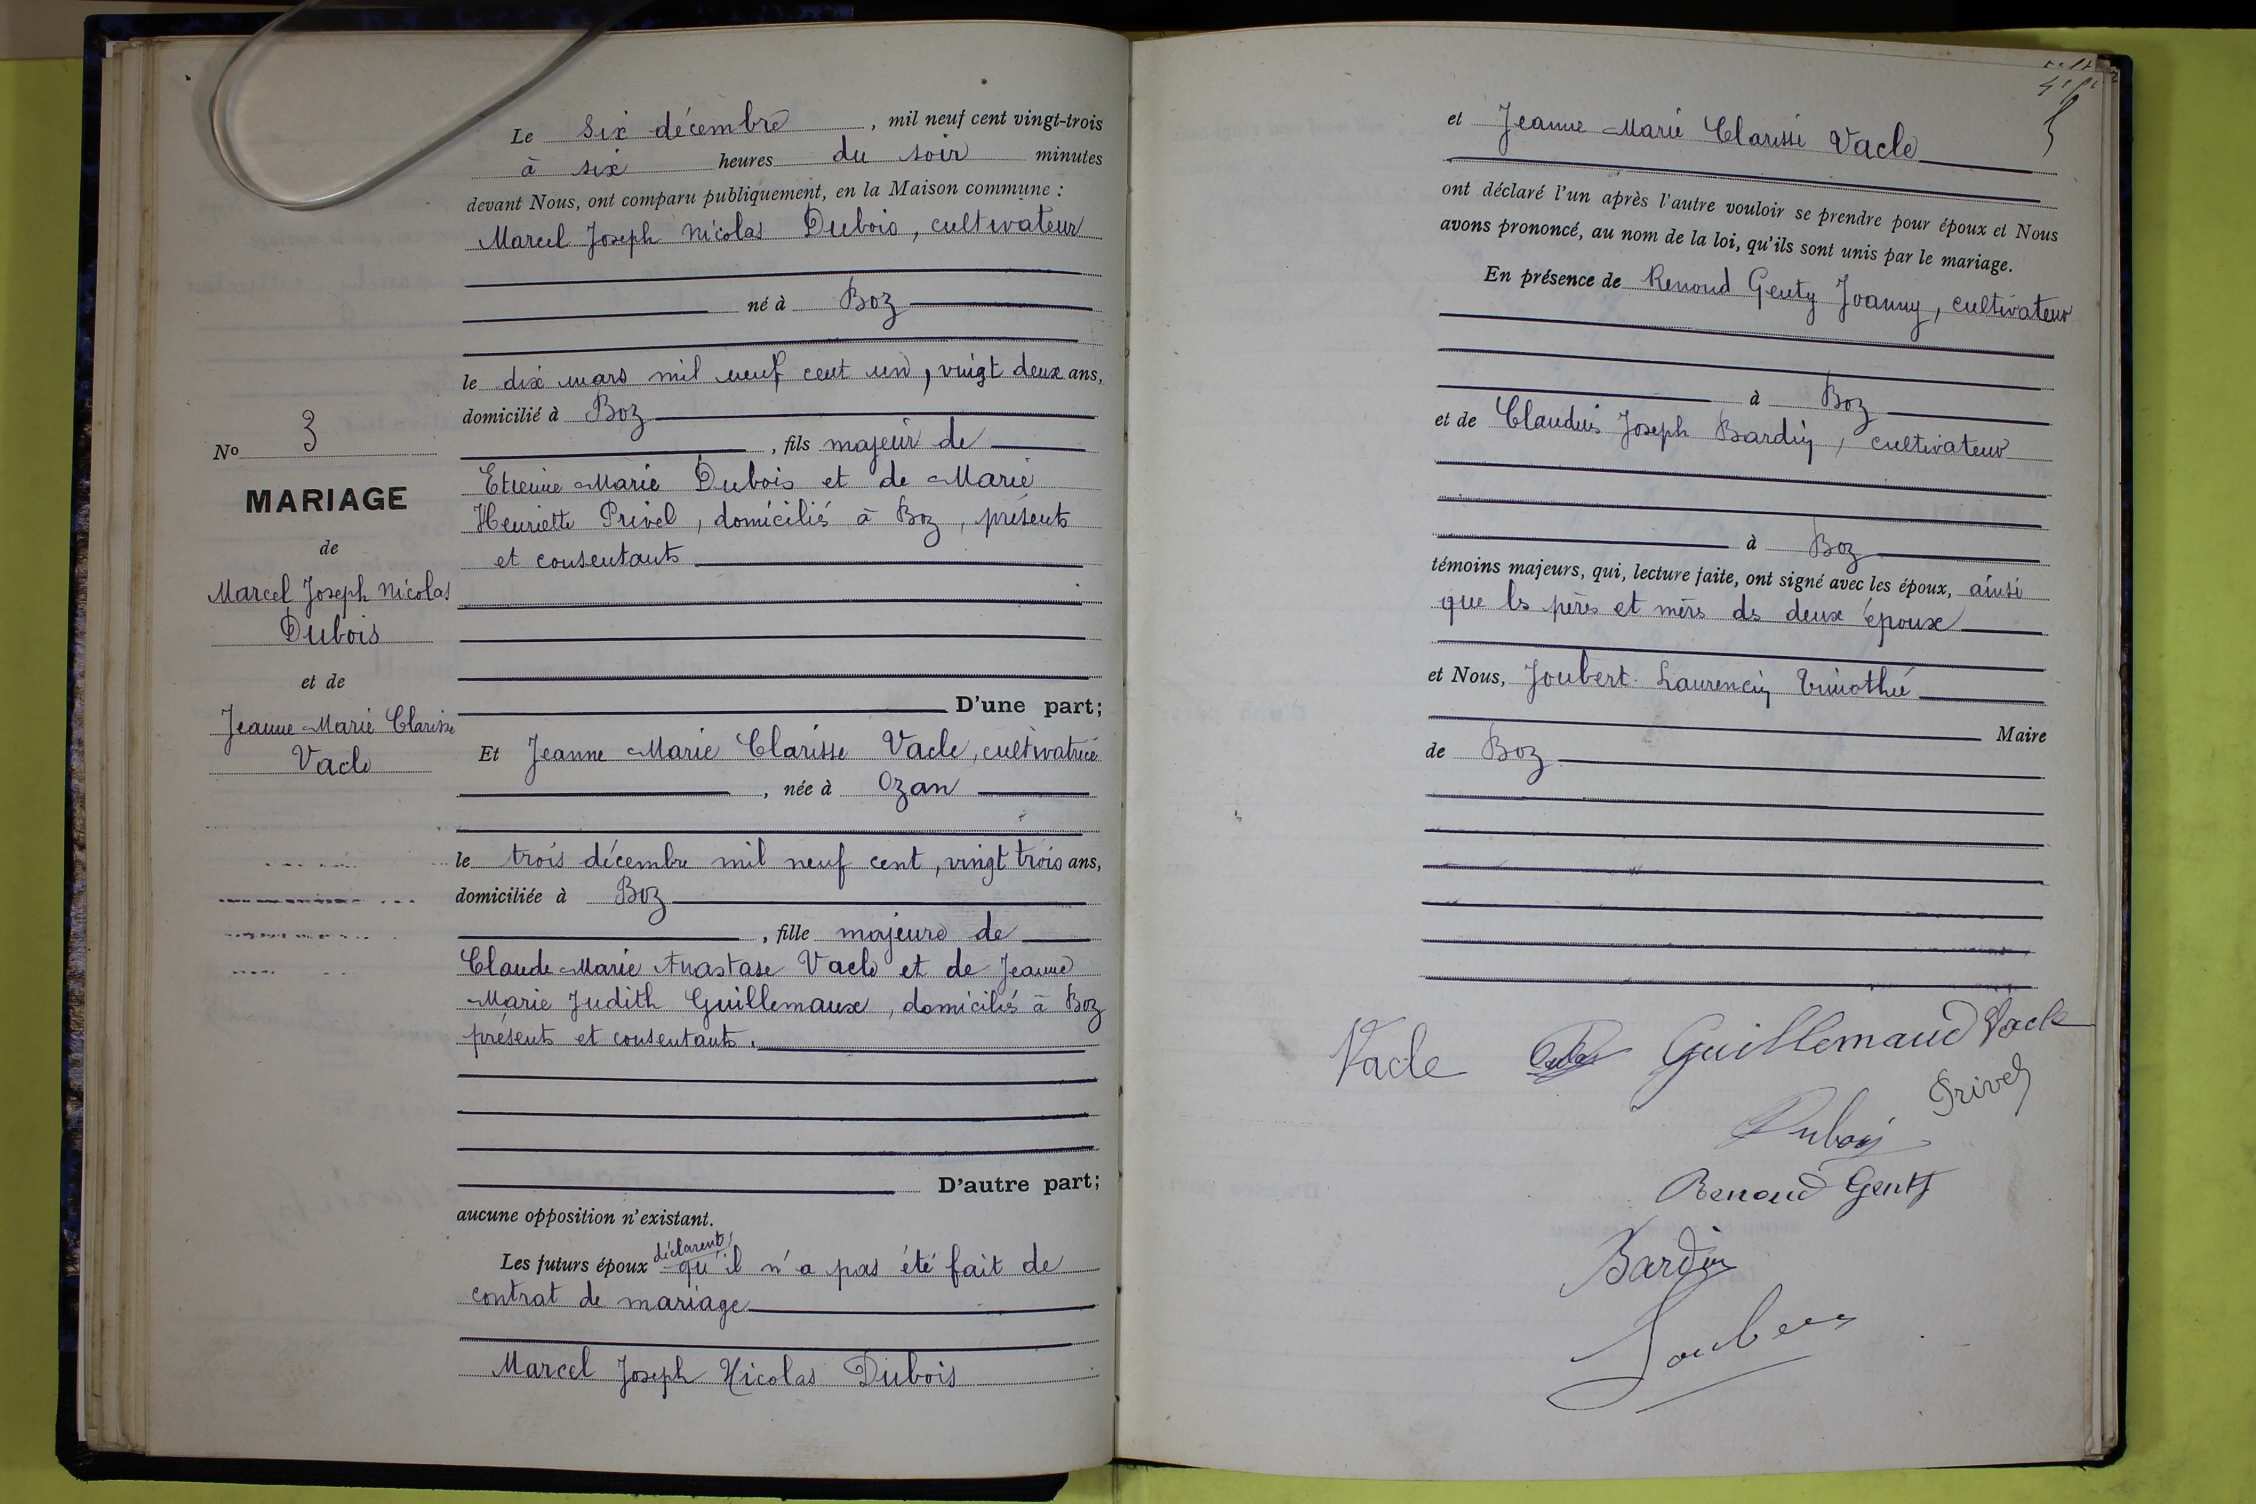 No 3
MARIAGE
de
Marcel Joseph Nicolas
Dubois
et de
Jeanne Marie Clarisse
Vacle
Le six décembre, mil neuf cent vingt-trois
à six heures du soir minutes
devant Nous, ont comparu publiquement, en la Maison commune :
Marcel Joseph Nicolas Dubois, cultivateur
né à Boz
le dix mars mil neuf cent un, vingt deux ans,
domicilié à Boz
, fils majeur de
Etienne Marie Dubois et de Marie
Henriette Privel, domiciliés à Boz, présents
et consentants
D'une part;
Et Jeanne Marie Clarisse Vacle, cultivatrice
, née à Ozan
le trois décembre mil neuf cent, vingt trois ans,
domiciliée à Boz
, fille majeure de
Claude Marie Anastase Vacle et de Jeanne
Marie Judith Guillemaux, domiciliés à Boz
présents et consentants.
D'autre part;
aucune opposition n'existant.
Les futurs époux déclarent qu'il n'a pas été fait de
contrat de mariage
Marcel Joseph Nicolas Dubois
et Jeanne Marie Clarisse Vacle
ont déclaré l'un après l'autre vouloir se prendre pour époux et Nous
avons prononcé, au nom de la loi, qu'ils sont unis par le mariage.
En présence de Renoud Genty Joanny, cultivateur
à Boz
et de Claudius Joseph Bardin, cultivateur
à Boz
témoins majeurs, qui, lecture faite, ont signé avec les époux, ainsi
que ls pères et mèrs ds deux époux
et Nous, Joubert Laurencin Timothée
Maire
de Boz
Vacle Guillemaud Vacle
Privel
Dubois
Renoud Genty
Bardin
Joubert